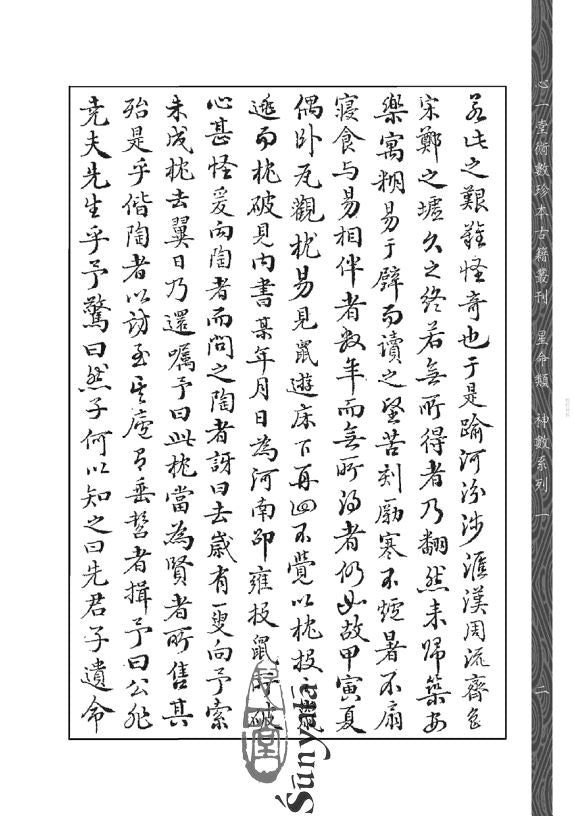 若此之艱難怪奇也于是踰河汾涉淮漢周流齊魯
宋鄭之墟久之終若無所得者乃翻然來歸築安
樂窩糊易于壁而讀之堅苦刻勵寒不爐暑不扇
寢食与易相伴者数年而無所得者仍如故甲寅夏
偶卧瓦觀枕易見鼠遊床下再四不覺以枕投之鼠
逝而枕破見内書某年月日為河南邵雍投鼠時破
心甚怪爰向陶者而問之陶者訝曰去歲有一叟向予索
未成枕去翼日乃還囑予曰此枕當為賢者所售其
殆是乎偕陶者以訪至其廬有垂髫者揖予曰公非
尭夫先生乎予驚曰然子何以知之曰先君子遺命
心一堂術數珍本古籍叢刊　星命類　神數系列　一
二
心一堂
Śūnyatā